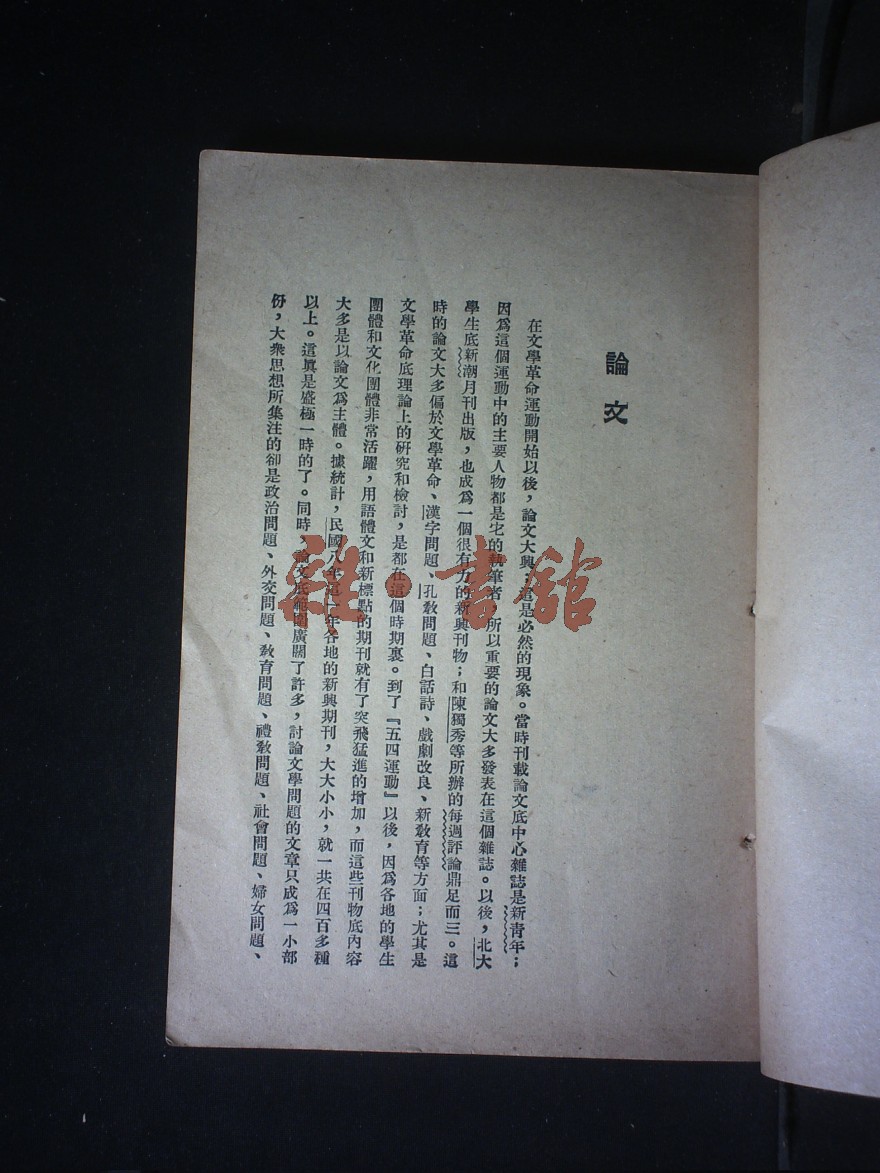 論文
在文學革命運動開始以後，論文大興；這是必然的現象。當時刊載論文底中心雜誌是新青年；
因為這個運動中的主要人物都是它的執筆者，所以重要的論文大多發表在這個雜誌。以後，北大
學生底新潮月刊出版，也成為一個很有力的新興刊物；和陳獨秀等所辦的每週評論鼎足而三。這
時的論文大多偏於文學革命、漢字問題、孔教問題、白話詩、戲劇改良、新教育等方面；尤其是
文學革命底理論上的研究和檢討，是都在這個時期裏。到了『五四運動』以後，因為各地的學生
團體和文化團體非常活躍，用語體文和新標點的期刊就有了突飛猛進的增加，而這些刊物底內容
大多是以論文為主體。據統計，民國八年這一年各地的新興期刊，大大小小，就一共在四百多種
以上。這眞是盛極一時的了。同時，論文底範圍廣闊了許多，討論文學問題的文章只成為一小部
份，大衆思想所集注的卻是政治問題、外交問題、教育問題、禮教問題、社會問題、婦女問題、
雜·書館